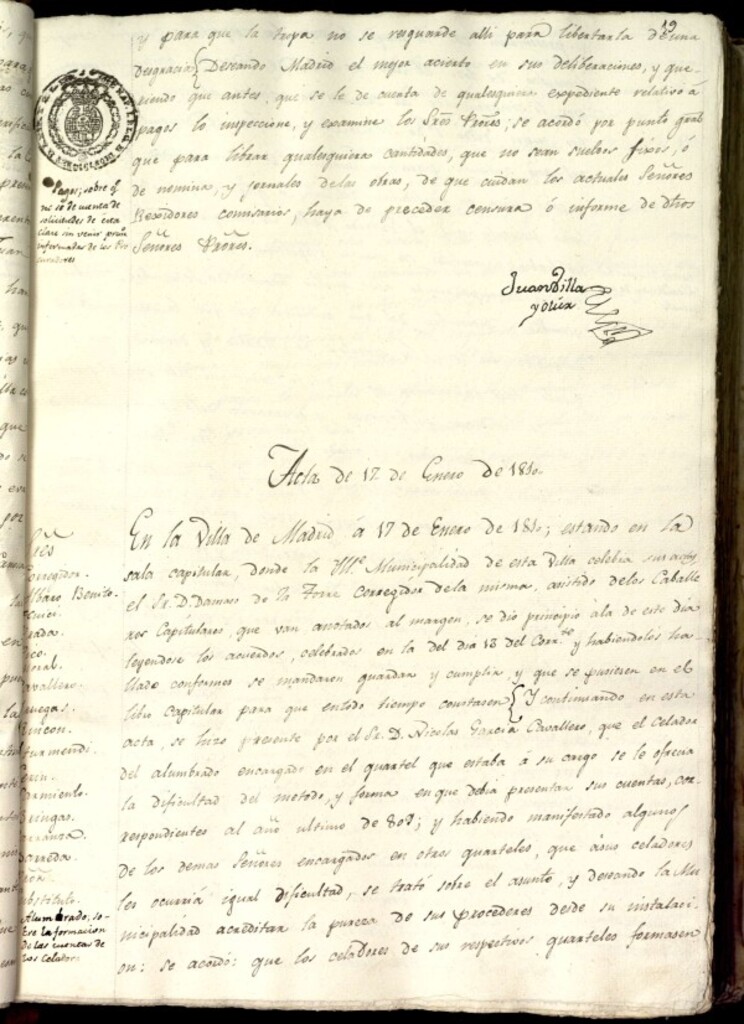 19
y para que la tropa no se resguarde alli para libertarla de una
desgracia { Deseando Madrid el mejor acierto en sus deliberaciones, y que-
riendo que antes, que se le de cuenta de qualesquiera expediente relativo á
pagos lo inspeccione, y examine los Sres Prores; se acordó por punto gral
que para librar qualesquiera cantidades, que no sean sueldos fixos, ó
de nomina, y jornales de las obras, de que cuidan los actuales Señores
Rexidores comisarios, haya de preceder censura ó informe de dhos
Señores Prores.
Pagos; sobre q.
no se de cuenta de
solicitudes de esta
clase sin venir prim.
informadas de los Pro
curadores
Juan Villa
y Olier
Acta de 17 de Enero de 1810.
En la Villa de Madrid á 17 de Enero de 1810; estando en la
sala capitular, donde la Ille Municipalidad de esta Villa celebra sus actas,
el Sr. D. Damaso de la Torre Corregidor de la misma, asistido de los Caballe
ros Capitulares, que van anotados al margen, se dio principio á la de este dia
leyendose los acuerdos, celebrados en la del dia 13 del Corrte y habiendolos ha-
llado conformes se mandaron guardar y cumplir, y que se pusiesen en el
libro capitular para que en todo tiempo constasen { Y continuando en esta
acta, se hizo presente por el Sr. D. Nicolas Garcia Cavallero, que el Celador
del alumbrado encargado en el quartel que estaba á su cargo se le ofrecia
la dificultad del metodo, y forma en que debia presentar sus cuentas, cor-
respondientes al año ultimo de 809; y habiendo manifestado algunos
de los demas Señores encargados en otros quarteles, que á sus celadores
les ocurria igual dificultad, se trató sobre el asunto, y deseando la Mu
nicipalidad acreditar la pureza de sus procederes desde su instalaci-
on: se acordó: que los celadores de sus respectivos quarteles formasen
orregidor.
lbaro Benito.
avallero.
incon.
armiento.
ringas.
arranza.
orreda.
ubstituto.
Alumbrado; so-
bre la formacion
de las cuentas de
los Celador.